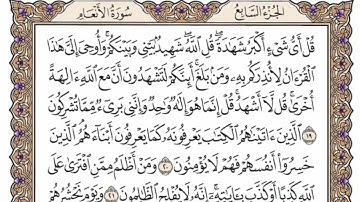 الجزء السابع سورة الأنعام
قُلْ أَيُّ شَيْءٍ أَكْبَرُ شَهَٰدَةً ۖ قُلِ ٱللَّهُ ۖ شَهِيدٌۢ بَيْنِى وَبَيْنَكُمْ ۚ وَأُوحِىَ إِلَىَّ هَٰذَا
ٱلْقُرْءَانُ لِأُنذِرَكُم بِهِۦ وَمَنۢ بَلَغَ ۚ أَئِنَّكُمْ لَتَشْهَدُونَ أَنَّ مَعَ ٱللَّهِ ءَالِهَةً
أُخْرَىٰ ۚ قُل لَّآ أَشْهَدُ ۚ قُلْ إِنَّمَا هُوَ إِلَٰهٌ وَٰحِدٌ وَإِنَّنِى بَرِىٓءٌ مِّمَّا تُشْرِكُونَ
١٩ ٱلَّذِينَ ءَاتَيْنَٰهُمُ ٱلْكِتَٰبَ يَعْرِفُونَهُۥ كَمَا يَعْرِفُونَ أَبْنَآءَهُمُ ۘ ٱلَّذِينَ
خَسِرُوٓا۟ أَنفُسَهُمْ فَهُمْ لَا يُؤْمِنُونَ ٢٠ وَمَنْ أَظْلَمُ مِمَّنِ ٱفْتَرَىٰ عَلَى
ٱللَّهِ كَذِبًا أَوْ كَذَّبَ بِـَٔايَٰتِهِۦٓ ۗ إِنَّهُۥ لَا يُفْلِحُ ٱلظَّٰلِمُونَ ٢١ وَيَوْمَ نَحْشُرُهُمْ